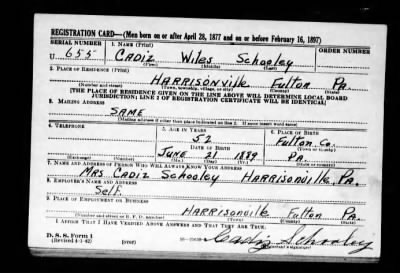 REGISTRATION CARD—(Men born on or after April 28, 1877 and on or before February 16, 1897)
SERIAL NUMBER
1. NAME (Print)
ORDER NUMBER
U 655
CADIZ Wiles Schooley
(First) (Middle) (Last)
2. PLACE OF RESIDENCE (Print)
HARRISONVILLE Fulton PA.
(Number and street) (Town, township, village, or city) (County) (State)
[THE PLACE OF RESIDENCE GIVEN ON THE LINE ABOVE WILL DETERMINE LOCAL BOARD
JURISDICTION; LINE 2 OF REGISTRATION CERTIFICATE WILL BE IDENTICAL]
3. MAILING ADDRESS
SAME
[Mailing address if other than place indicated on line 2. If same insert word same]
4. TELEPHONE
5. AGE IN YEARS
6. PLACE OF BIRTH
52
Fulton Co.
DATE OF BIRTH
(Town or county)
JUNE 21 1889
PA.
(Exchange) (Number)
(Mo.) (Day) (Yr.)
(State or country)
7. NAME AND ADDRESS OF PERSON WHO WILL ALWAYS KNOW YOUR ADDRESS
MRS CADIZ Schooley HARRISONVILLE, PA.
8. EMPLOYER'S NAME AND ADDRESS
Self.
9. PLACE OF EMPLOYMENT OR BUSINESS
HARRISONVILLE Fulton PA.
(Number and street or R. F. D. number) (Town) (County) (State)
I AFFIRM THAT I HAVE VERIFIED ABOVE ANSWERS AND THAT THEY ARE TRUE.
D. S. S. Form 1
(Revised 4-1-42) (over)
Cadiz Schooley
(Registrant's signature)